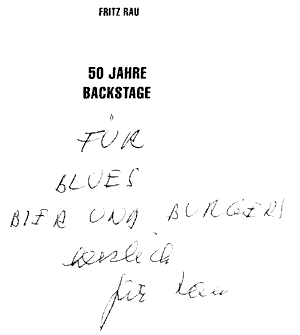 FRITZ RAU
50 JAHRE
BACKSTAGE
FÜR
BLUES
BIER UND BURGERS
herzlich
Fritz Rau